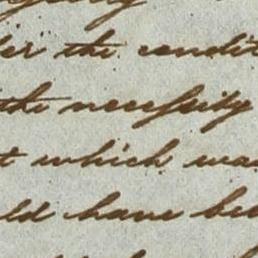 er the condit
the necessity
t which was
ld have be